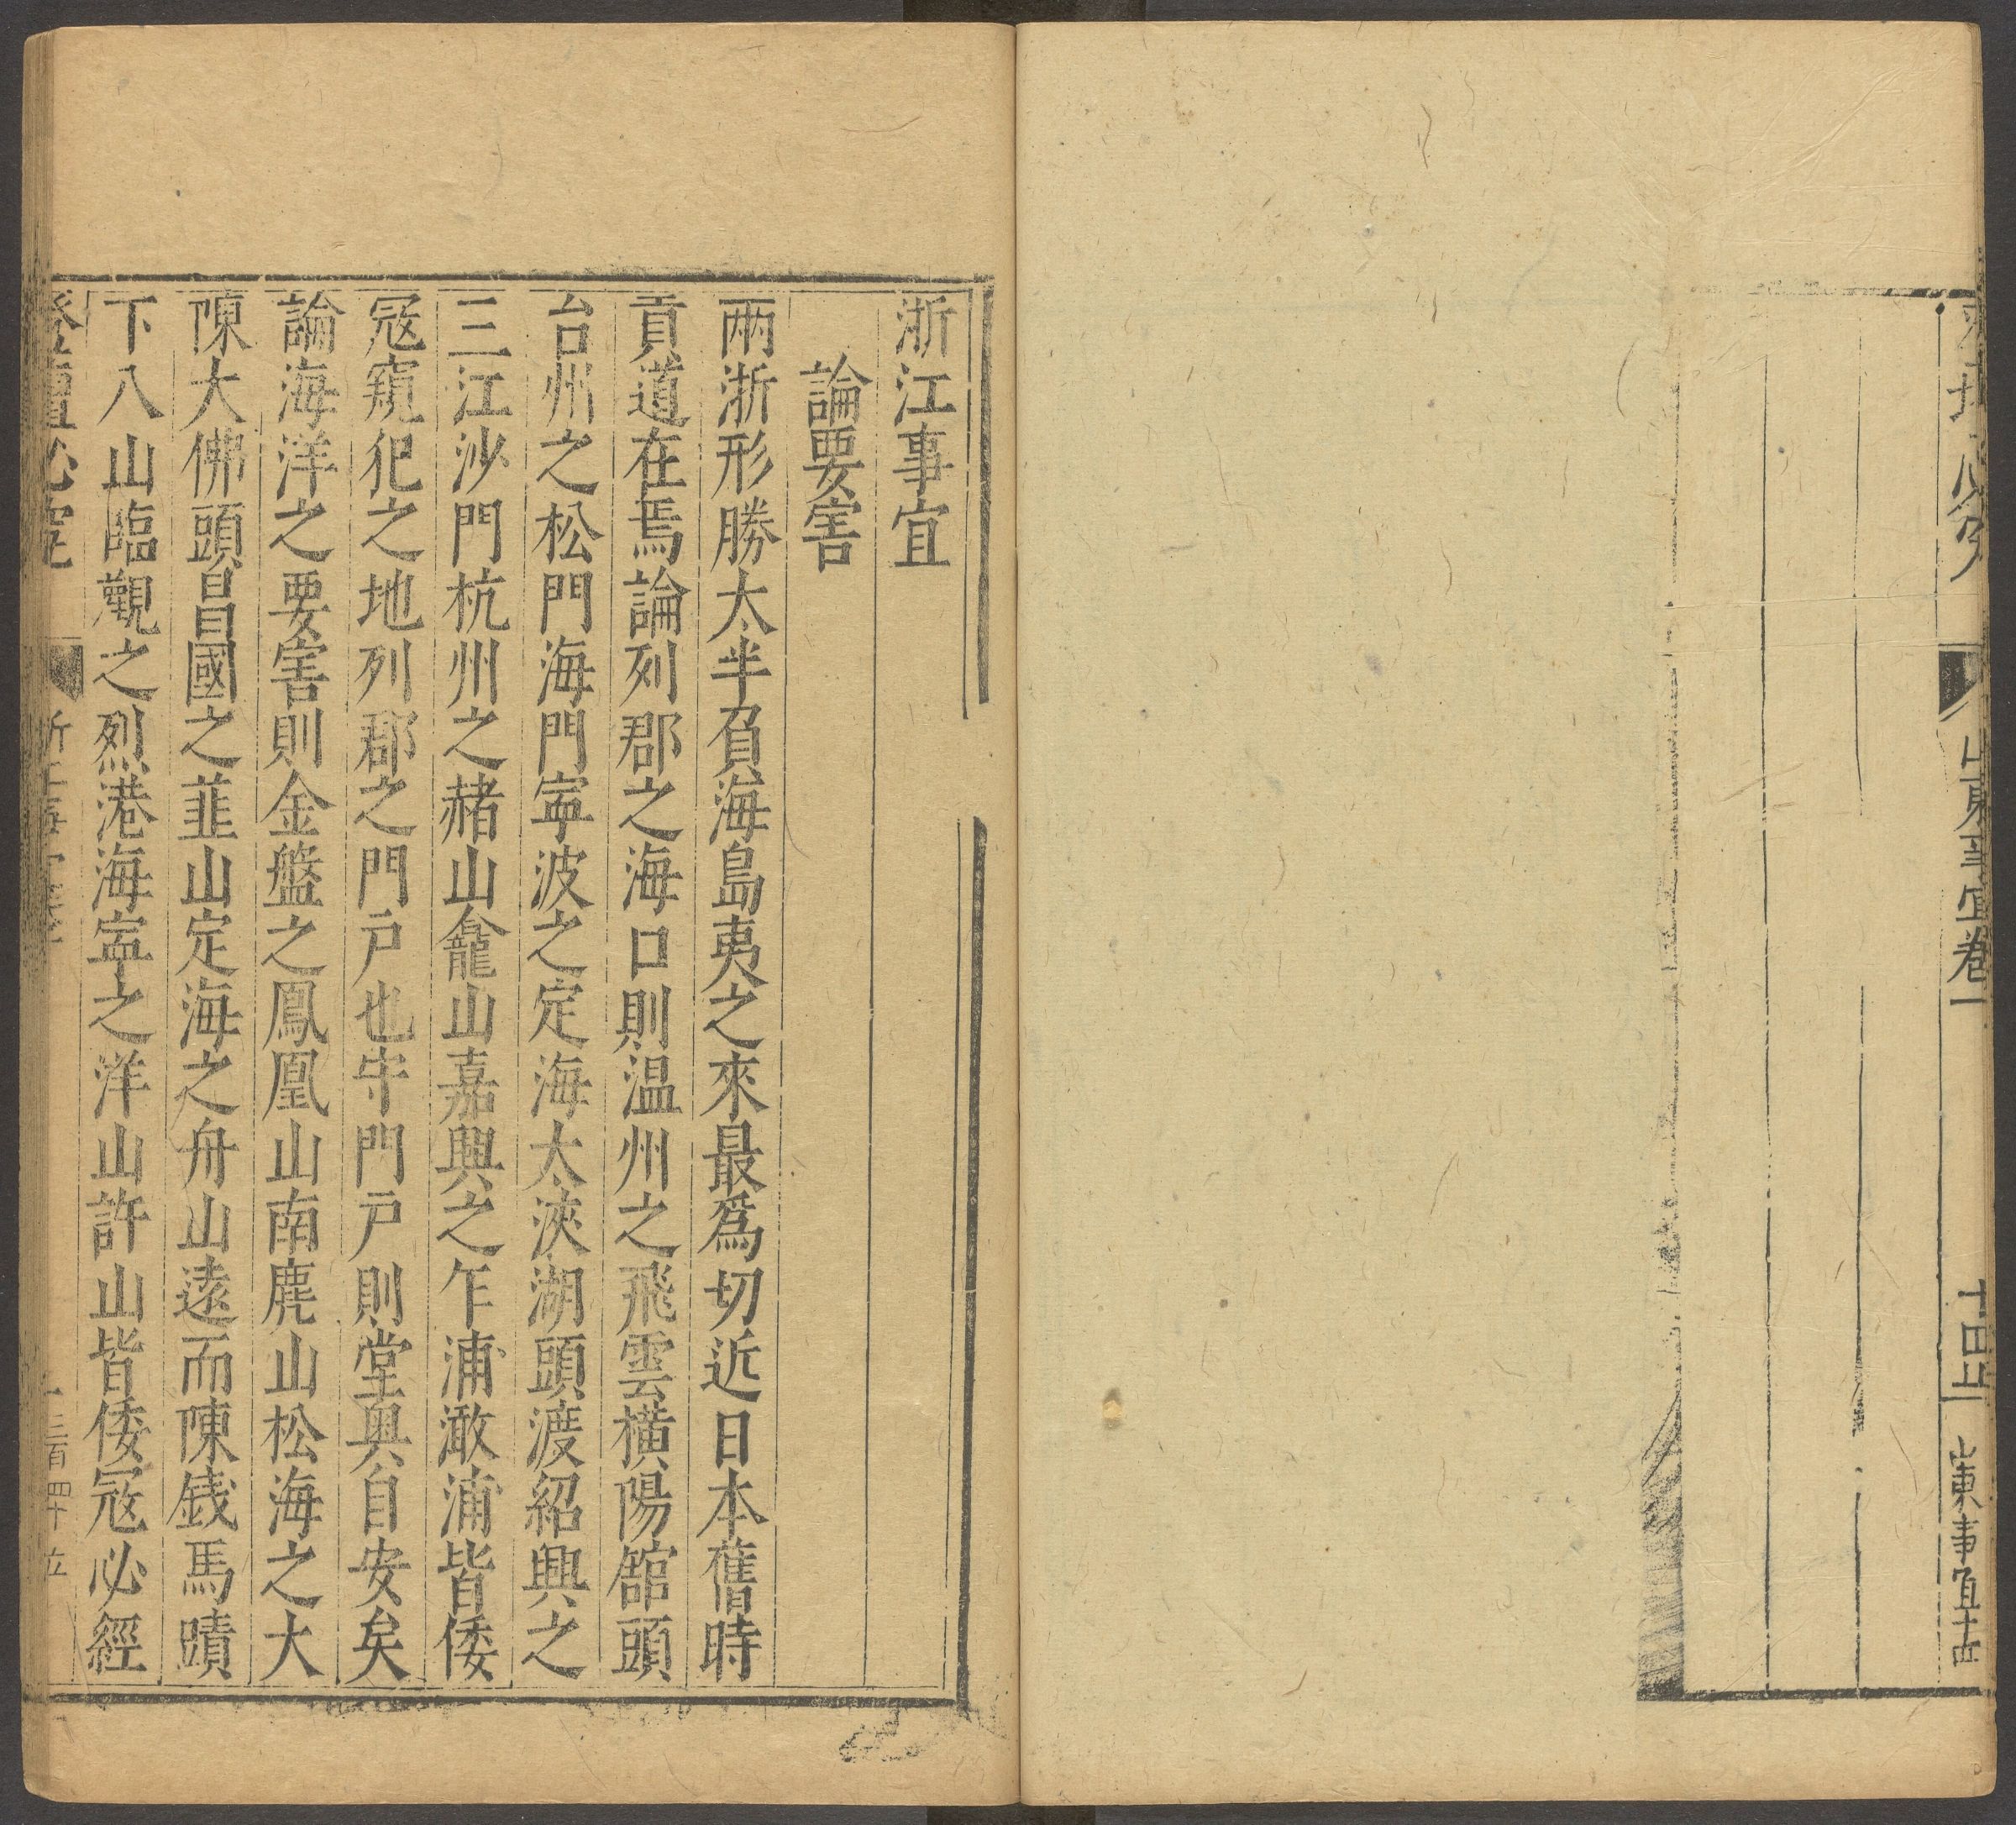 山東事宜卷一
十四止
山東事宜十四
浙江事宜
論要害
兩浙形勝太半負海島夷之來最爲切近日本舊時
貢道在焉論列郡之海口則温州之飛雲橫陽舘頭
台州之松門海門寧波之定海大浹湖頭渡紹興之
三江沙門杭州之赭山龕山嘉興之乍浦澉浦皆倭
寇窺犯之地列郡之門戶也守門戶則堂奧自安矣
論海洋之要害則金盤之鳳凰山南麂山松海之大
陳大佛頭昌國之韮山定海之舟山遠而陳錢馬蹟
下八山臨觀之烈港海寧之洋山許山皆倭寇必經